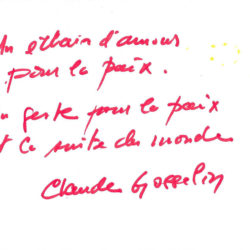 un élan d'amour
pour la paix.
un geste pour la paix
et la suite du monde
Claude Gosselin